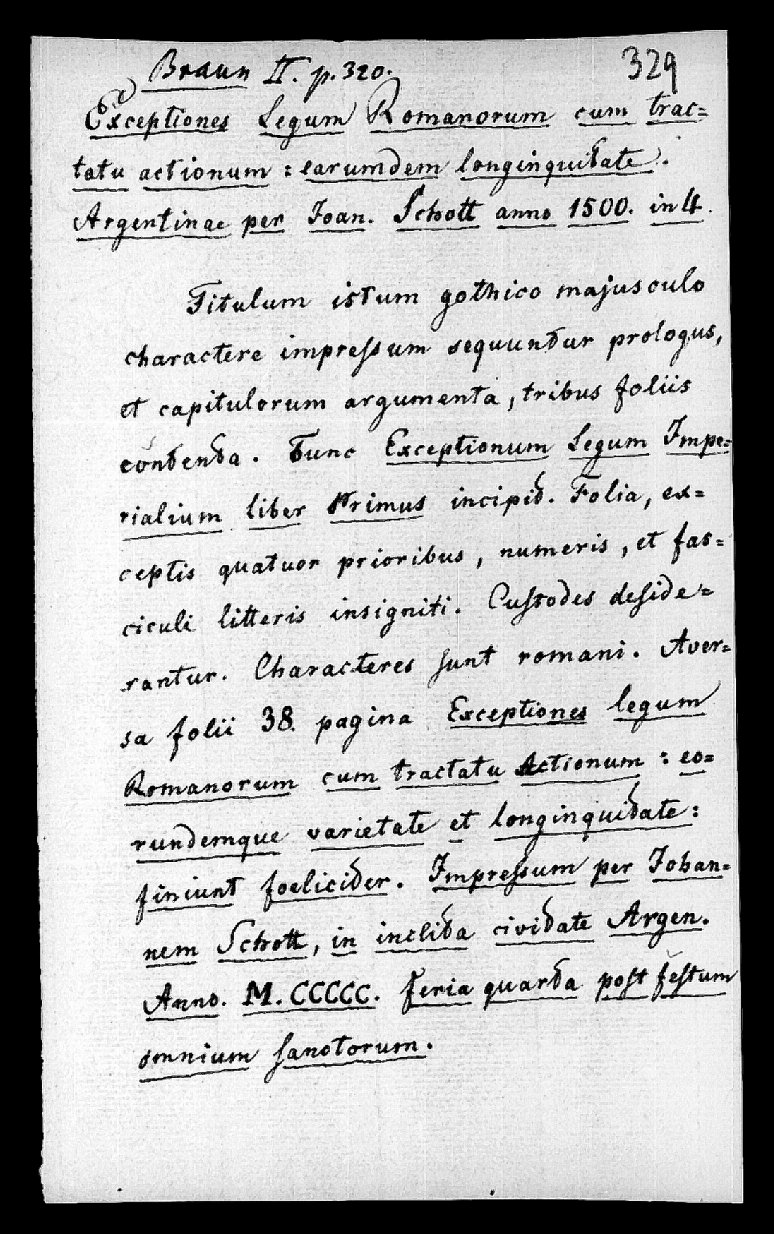 Braun II. p. 320.
329
Exceptiones Legum Romanorum cum trac=
tatu actionum : earumdem longinquitate.
Argentinae per Joan. Schott anno 1500. in 4.
Titulum istum gothico majusculo
charactere impressum sequuntur prologus,
et capitulorum argumenta, tribus foliis
contenta. Tunc Exceptionum Legum Impe=
rialium liber Primus incipit. Folia, ex=
ceptis quatuor prioribus, numeris, et fas=
ciculi litteris insigniti. Custodes deside=
rantur. Characteres sunt romani. Aver=
sa folii 38. pagina Exceptiones legum
Romanorum cum tractatu Actionum : eo=
rundemque varietate et longinquitate:
finiunt foeliciter. Impressum per Johan=
nem Schott, in inclita civitate Argen.
Anno. M. CCCCC. feria quarta post festum
omnium sanctorum.